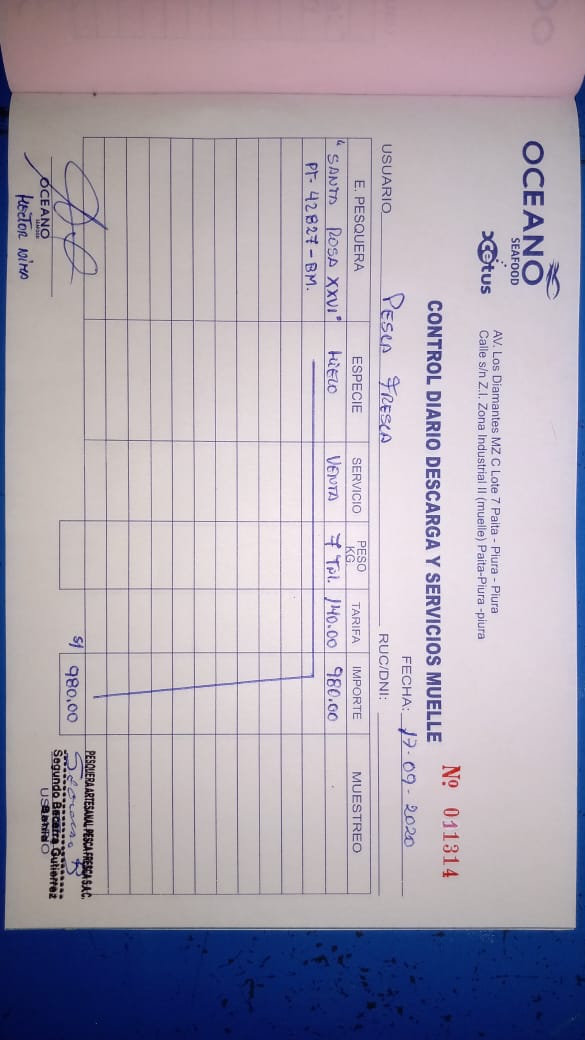 OCEANO
SEAFOOD
Xcetus
AV. Los Diamantes MZ C Lote 7 Paita - Piura - Piura
Calle s/n Z.I. Zona Industrial II (muelle) Paita-Piura -piura
Nº 011314
CONTROL DIARIO DESCARGA Y SERVICIOS MUELLE
FECHA: 17-09-2020
USUARIO PESCA FRESCA RUC/DNI:
E. PESQUERA ESPECIE SERVICIO PESO KG. TARIFA IMPORTE MUESTREO
"SANTA ROSA XXVI" HIELO VENTA 7 Tn. 140.00 980.00
PT-42827-BM.
S/ 980.00
OCEANO
SEAFOOD
HECTOR NIMA
PESQUERA ARTESANAL PESCA FRESCA S.A.C.
Segundo Becerra Gutierrez
Bahía
USUARIO